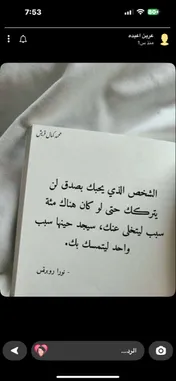 7:53
عرين اعبده
منذ س1
محمد كمال قريش
الشخص الذي يحبك بصدق لن
يتركك حتى لو كان هناك مئة
سبب ليتخلى عنك، سيجد حينها سبب
واحد ليتمسك بك.
- نورا روبرتس
الرد...